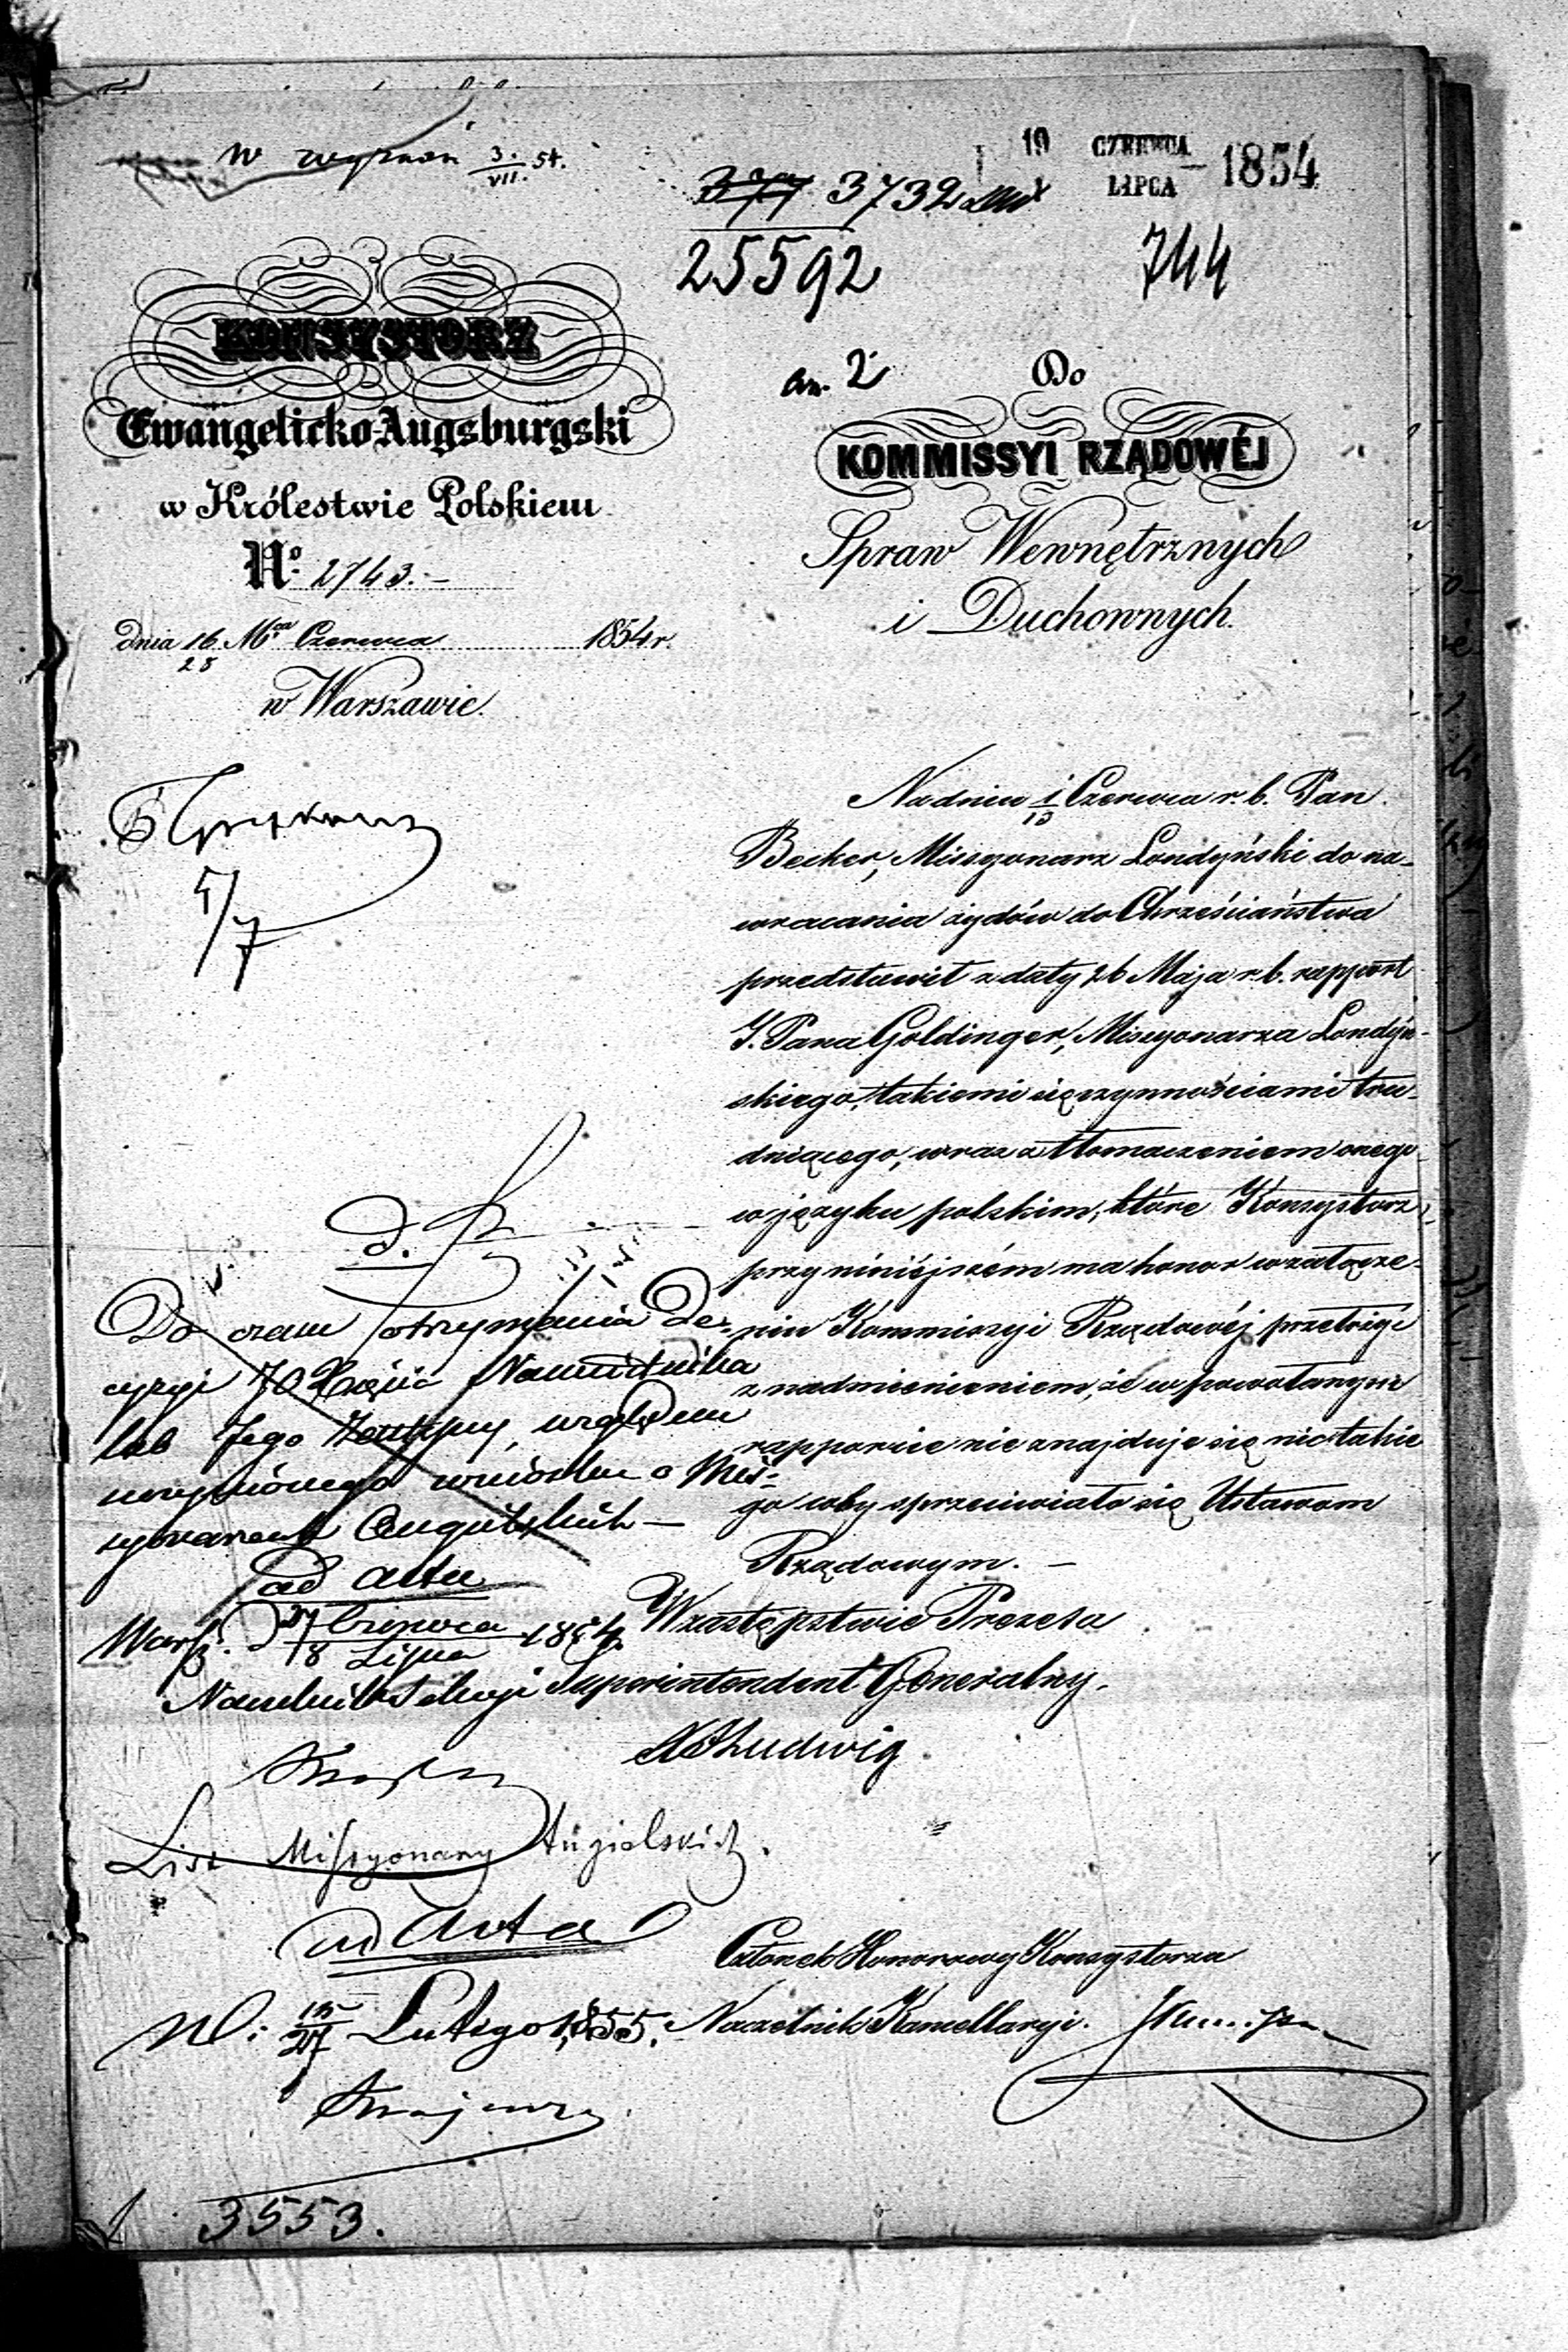 W 3. VII. 54.
377 3732
19 CZERWCA 1 LIPCA 1854
25592
744
KONSYSTORZ
Ewangelicko Augsburgski
w Królestwie Polskiem
Nº 2743.-
dnia 16/28 Mca Czerwca 1854 r.
w Warszawie.
an. 2
Do
KOMMISSYI RZĄDOWÉJ
Spraw Wewnętrznych
i Duchownych.
5/7
Na dniu 1/13 Czerwca r. b. Pan
Becker, Missyonarz Londyński do na-
wracania żydów do Chrześciaństwa
przedstawił z daty 26 Maja r. b. rapport
J. Pana Goldinger, Missyonarza Londyń-
skiego, takiemi się czynnościami tru-
dniącego, wraz z tłomaczeniem onego
w języku polskim, które Konsystorz
przy niniéjszém ma honor w załącze-
niu Kommissyi Rządowéj przełożyć
z nadmienieniem, że w powołanym
rapporcie nie znajduje się nic takie
go coby sprzeciwiało się Ustawom
Rządowym. -
W zastępstwie Prezesa
Superintendent Generalny.
Ludwig
Członek Honorowy Konsystorza
Naczelnik Kancellaryi.
Do czasu otrzymania De-
cyzyi JO Xięcia Namiestnika
lub Jego Zastępcy, względem
wniosku o Mis-
syonarzach Angielskich —
ad acta
Warsz. d 27 Czerwca / 8 Lipca 1854
Naczelnik Sekcyi
List Missyonarzy Angielskich.
ad Acta
W. 15/27 Lutego 1855.
3553.